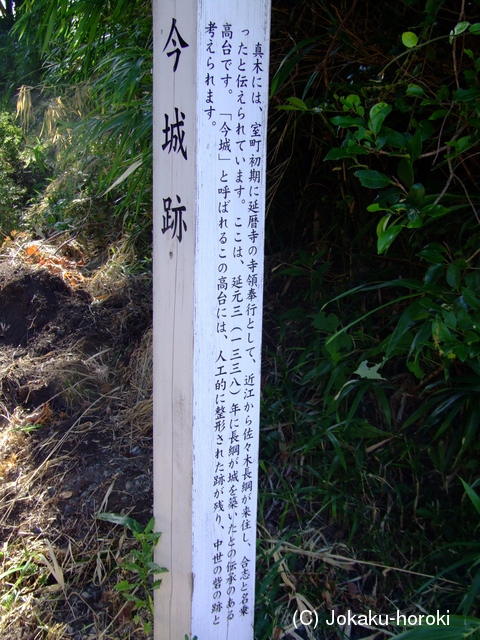 今城跡
真木には、室町初期に延暦寺の寺領奉行として、近江から佐々木長綱が来住し、合志と名乗
ったと伝えられています。ここは、延元三（一三三八）年に長綱が城を築いたとの伝承のある
高台です。「今城」と呼ばれるこの高台には、人工的に整形された跡が残り、中世の砦の跡と
考えられます。
(C) Jokaku-horoki